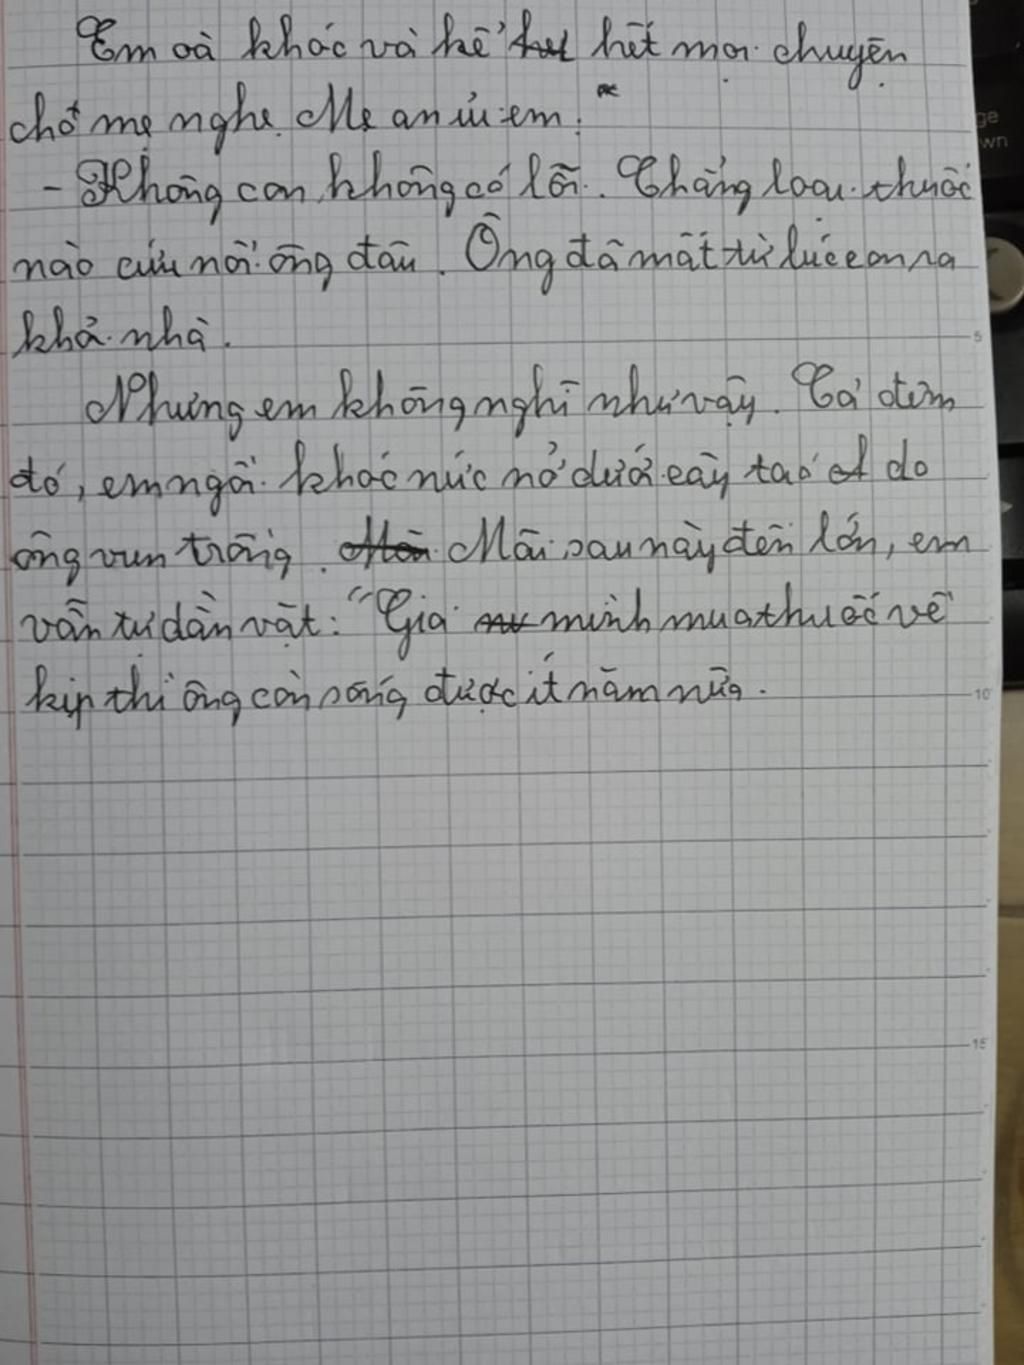 Em oà khóc và kể hết mọi chuyện
cho mẹ nghe. Mẹ an ủi em:
- Không con, không có lỗi. Chẳng loại thuốc
nào cứu nổi ông đâu. Ông đã mất từ lúc con ra
khỏ nhà.
Nhưng em không nghĩ như vậy. Cả đêm
đó, em ngồi khóc nức nở dưới cây táo do
ông vun trồng. Mãi sau này đến lớn, em
vẫn tự dằn vặt: "Giá mình mua thuốc về
kịp thì ông còn sống được ít năm nữa.
5
10
15